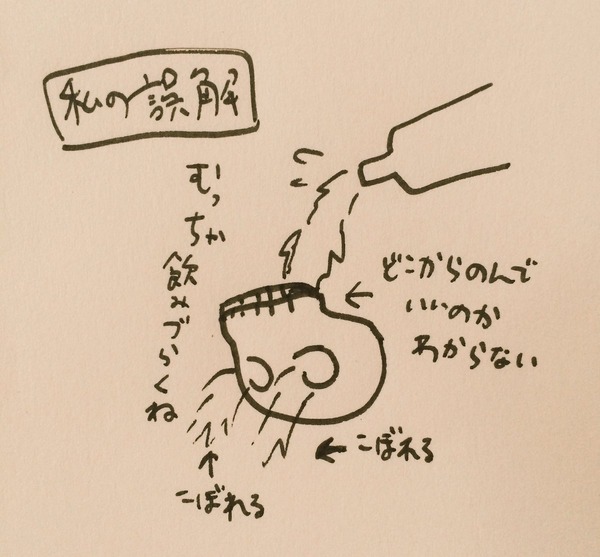 私の誤解
むっちゃ飲みづらくね
どこからのんで
いいのか
わからない
こぼれる
こぼれる